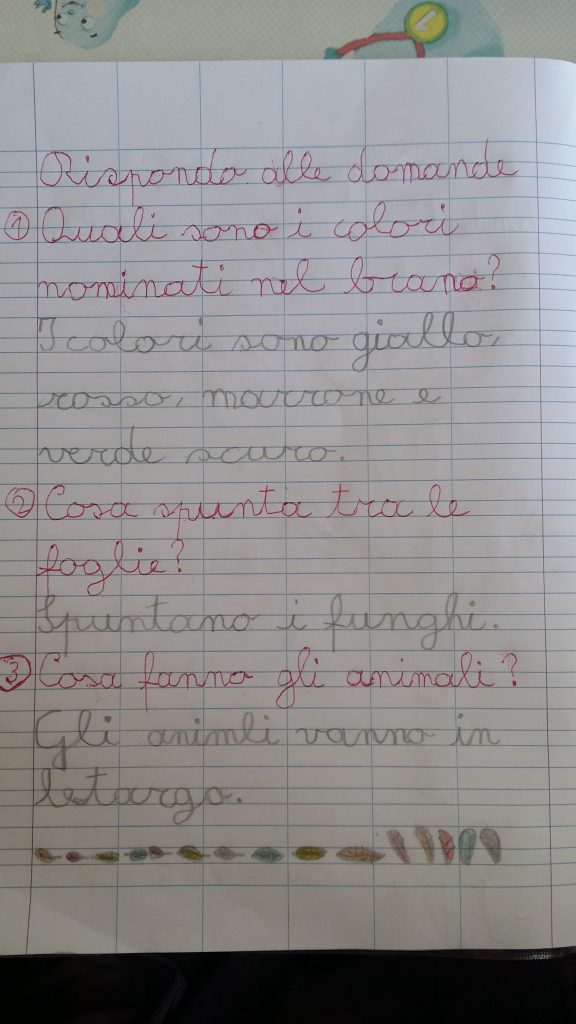 Rispondo alle domande
1 Quali sono i colori
nominati nel brano?
I colori sono giallo,
rosso, marrone e
verde scuro.
2 Cosa spunta tra le
foglie?
Spuntano i funghi.
3 Cosa fanno gli animali?
Gli animli vanno in
letargo.